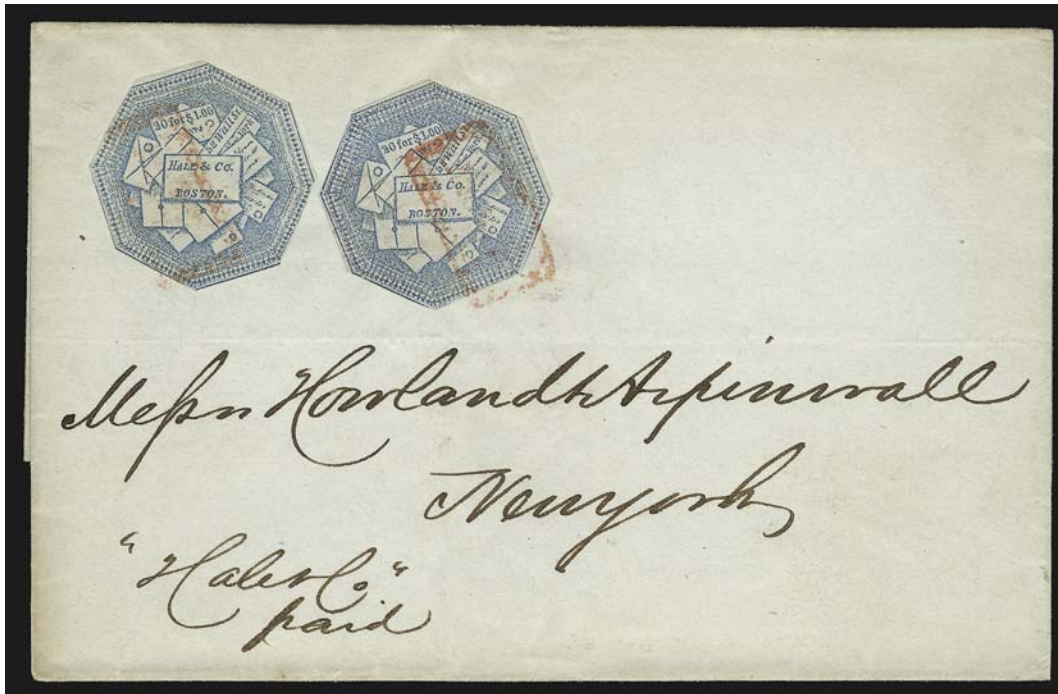 20 for $1.00
HALE & CO.
BOSTON.
20 for $1.00
HALE & CO.
BOSTON.
Messrs Howland & Aspinwall
New York
"Hale & Co"
paid